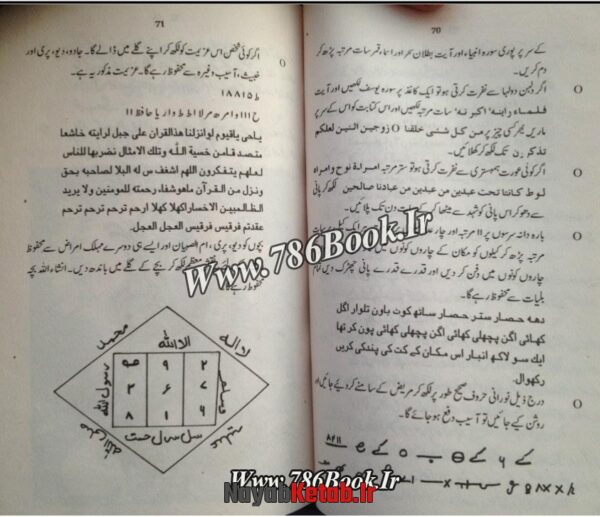 70
کے سر پر پوری سورہ انبیاء اور آیت بطلان سحر اور اسماء قمر سات مرتبہ پڑھ کر
دم کریں۔
اگر دلہن دولہا سے نفرت کرتی ہو تو ایک کاغذ پر سورہ یوسف لکھیں اور آیت
فلماء راینہ اکبر نہ سات مرتبہ لکھیں اور اس کتابت کو اس کے سر پر
ماریں پھر کسی چیز پر من کل شئی خلقنا زوجین اثنین لعلکم
تذکرون تک لکھ کر کھلائیں۔
اگر کوئی عورت ہمبستری سے نفرت کرتی ہو تو ستر مرتبہ امراۃ نوح وامراہ
لوط کانتا تحت عبدین من عبدین من عبادنا صالحین لکھ کر پانی
سے دھو کر اس پانی کو شہد سے میٹھا کر کے سات دن تک پلائیں۔
بارہ دانہ سرسوں پر ۱۱ مرتبہ اور چار
مرتبہ پڑھ کر کیلوں کو مکان کے چاروں کونوں میں
چاروں کونوں میں دفن کر دیں اور قدرے قدرے پانی چھڑک دیں تمام
بلیات سے محفوظ رہے گا۔
دھہ حصار ستر حصار ساتھ کوٹ باون تلوار اگل
کھائی اگن پچھلی کھائی اگن پچھلی کھائی پون کر تھا
ایک سو لاکھ انبار اس مکان کے کت کی پندکی کریں
رکھوال
درج ذیل نورانی حروف صحیح طور پر لکھ کر مریض کے سامنے کر دیئے جائیں اور
روشن کیے جائیں تو آسیب دفع ہو جائے گا۔
71
اگر کوئی شخص اس عزیمت کو لکھ کر اپنے گلے میں ڈالے گا۔ جادو، دیو، پری اور
خبیث، آسیب وغیرہ سے محفوظ رہے گا۔ عزیمت مذکور یہ ہے۔
ط ۱۸۸۱۵
ح ۱۱۱ وامرھ مرلا اطط وار یا حافظ ۱۱
یاحی یاقیوم لوانزلنا ھذا القران علی جبل لرایتہ خاشعا
متصد قامن خسیۃ اللّٰہ وتلک الامثال نضربھا للناس
لعلھم یتفکرون اللھم اشغف س لہ البلا لصاحبہ بحق
ونزل من القرآن ماھوشفاء رحمتہ للمومنین ولا یرید
الظالمبین الاخسارا کھلا کھلا ارحم ترحم ترحم ترحم
عقدتم فرقیس فرقیس العجل العجل
بچوں کو دیو، پری، ام الصبیان اور ایسے ہی دوسرے مہلک امراض سے محفوظ
لکھ کر بچے کے گلے میں باندھ دیں۔ انشاء اللہ بچہ
محفوظ رہے گا۔
محمد
الا اللہ
لا الہ
رسول اللہ
۹ ۲
۳ ۶ ۷
۸ ۱
Www.786Book.Ir
Www.786Book.Ir
Www.786Book.Ir
NayabKetab.Ir